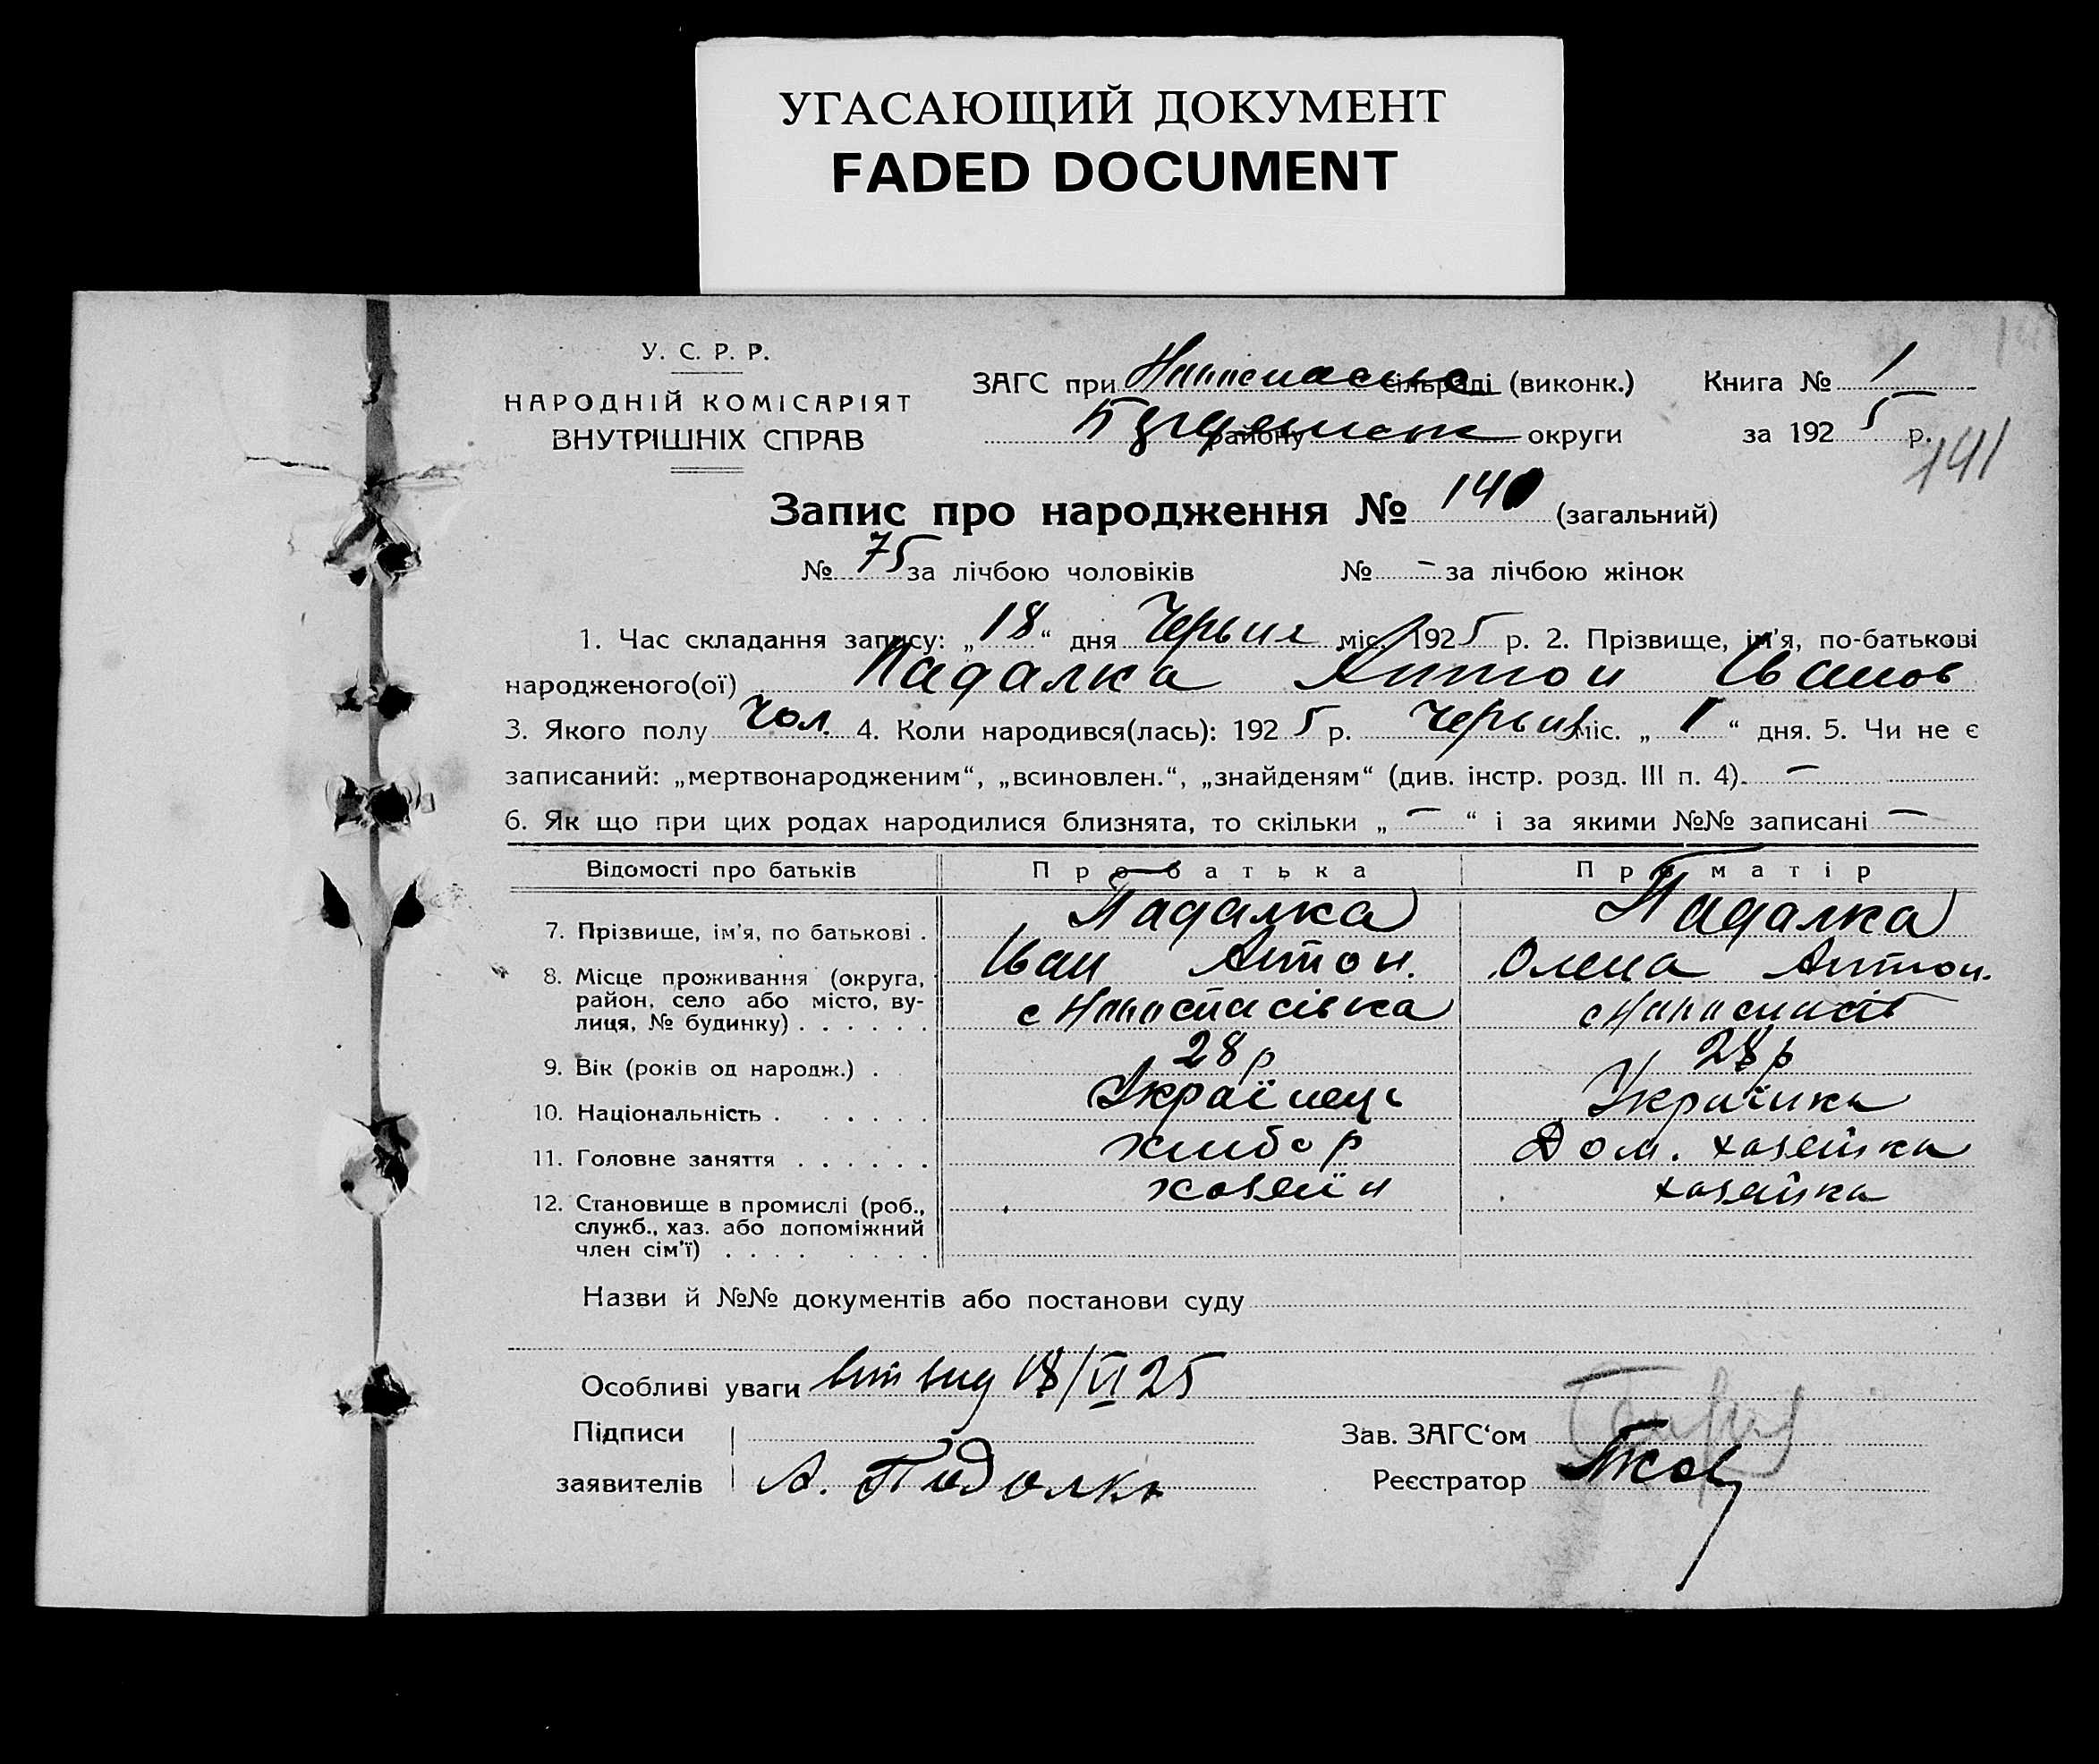 УГАСАЮЩИЙ ДОКУМЕНТ
FADED DOCUMENT
У. С. Р. Р.
НАРОДНІЙ КОМІСАРІЯТ
ВНУТРІШНІХ СПРАВ
ЗАГС при сільраді (виконк.) Книга № 1
району округи за 1925 р.
141
Запис про народження № 140 (загальний)
№ 75 за лічбою чоловіків № - за лічбою жінок
1. Час складання запису: „18“ дня Червня міс. 1925 р. 2. Прізвище, ім'я, по-батькові
народженого(ої) Падалка Антон Іванов
3. Якого полу Чол. 4. Коли народився(лась): 1925 р. Червня міс. „1“ дня. 5. Чи не є
записаний: „мертвонародженим“, „всиновлен.“, „знайденям“ (див. інстр. розд. III п. 4). —
6. Як що при цих родах народилися близнята, то скільки „—“ і за якими №№ записані —
Відомості про батьків Про батька Про матір
7. Прізвище, ім'я, по батькові . Падалка Падалка
Іван Антон. Олена Антон.
8. Місце проживання (округа,
район, село або місто, ву-
лиця, № будинку) . . . . . . с Новоспасівка с
9. Вік (років од народж.) . 28 р 28 р
10. Національність . . . . . Українець Українка
11. Головне заняття . . . . . . хлибор Дом. хазейка
12. Становище в промислі (роб.,
служб., хаз. або допоміжний
член сім'ї) . . . . . . . . хозеїн хазейка
Назви й №№ документів або постанови суду
Особливі уваги вид 18/VI 25
Підписи
заявителів А. Падалка
Зав. ЗАГС‘ом
Реєстратор